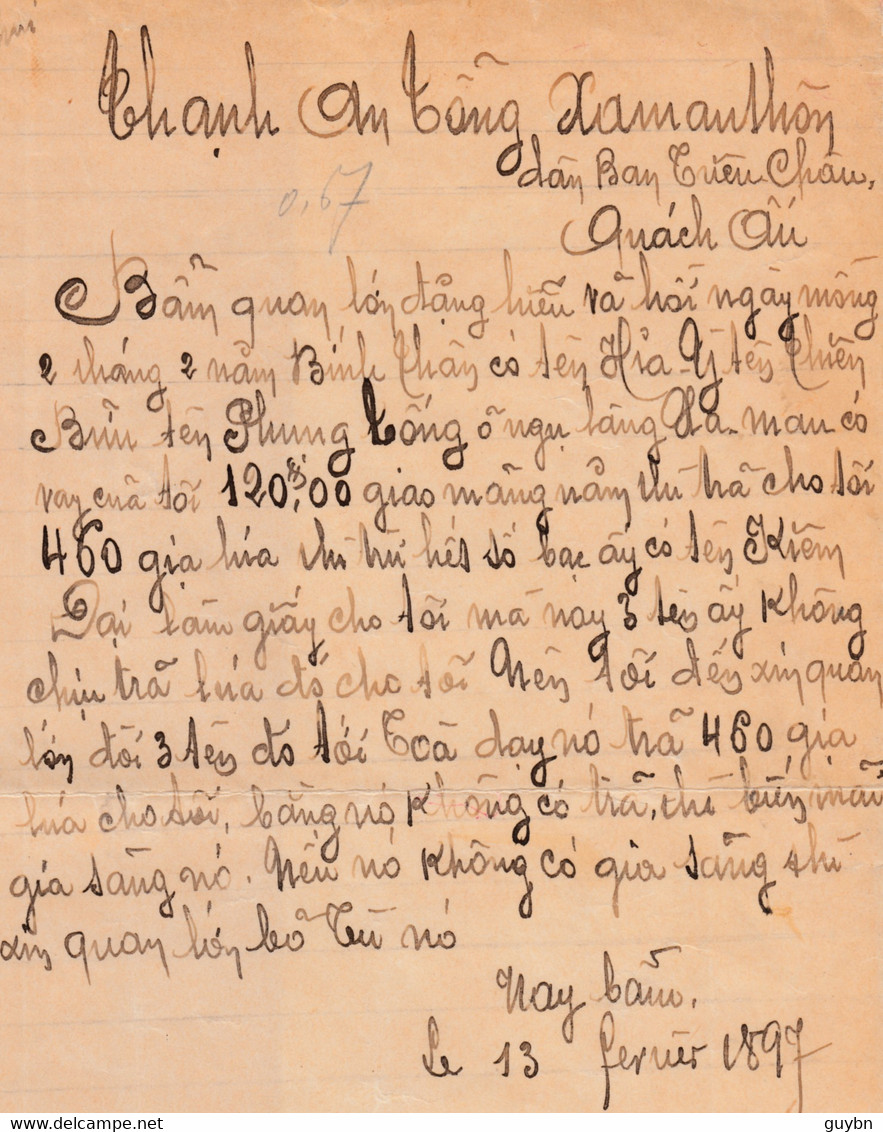 Thạnh An Tổng Xamanthôn
dân Bang Triều Châu,
0,67
Quách Ấu
Bẩm quan lớn đặng hiểu và hồi ngày mồng
2 tháng 2 năm Bính Thân có tên Hỉa-Ý tên Thiền
Bửu tên Phung Tống ở ngụ làng Xa-mau có
vay của tôi 120$,00 giao mãng năm thì trả cho tôi
460 giạ lúa thì trừ hết số bạc ấy có tên Kiêm
Đại làm giấy cho tôi mà nay 3 tên ấy không
chịu trả lúa đó cho tôi Nên tôi đến xin quan
lớn đòi 3 tên đó tới Toà dạy nó trả 460 giạ
lúa cho tôi, bằng nó không có trả, thì biên mãi
gia sảng nó. Nếu nó không có gia sảng thì
xin quan lớn bỏ Tù nó
Nay bẩm.
Le 13 fervier 1897
guybn